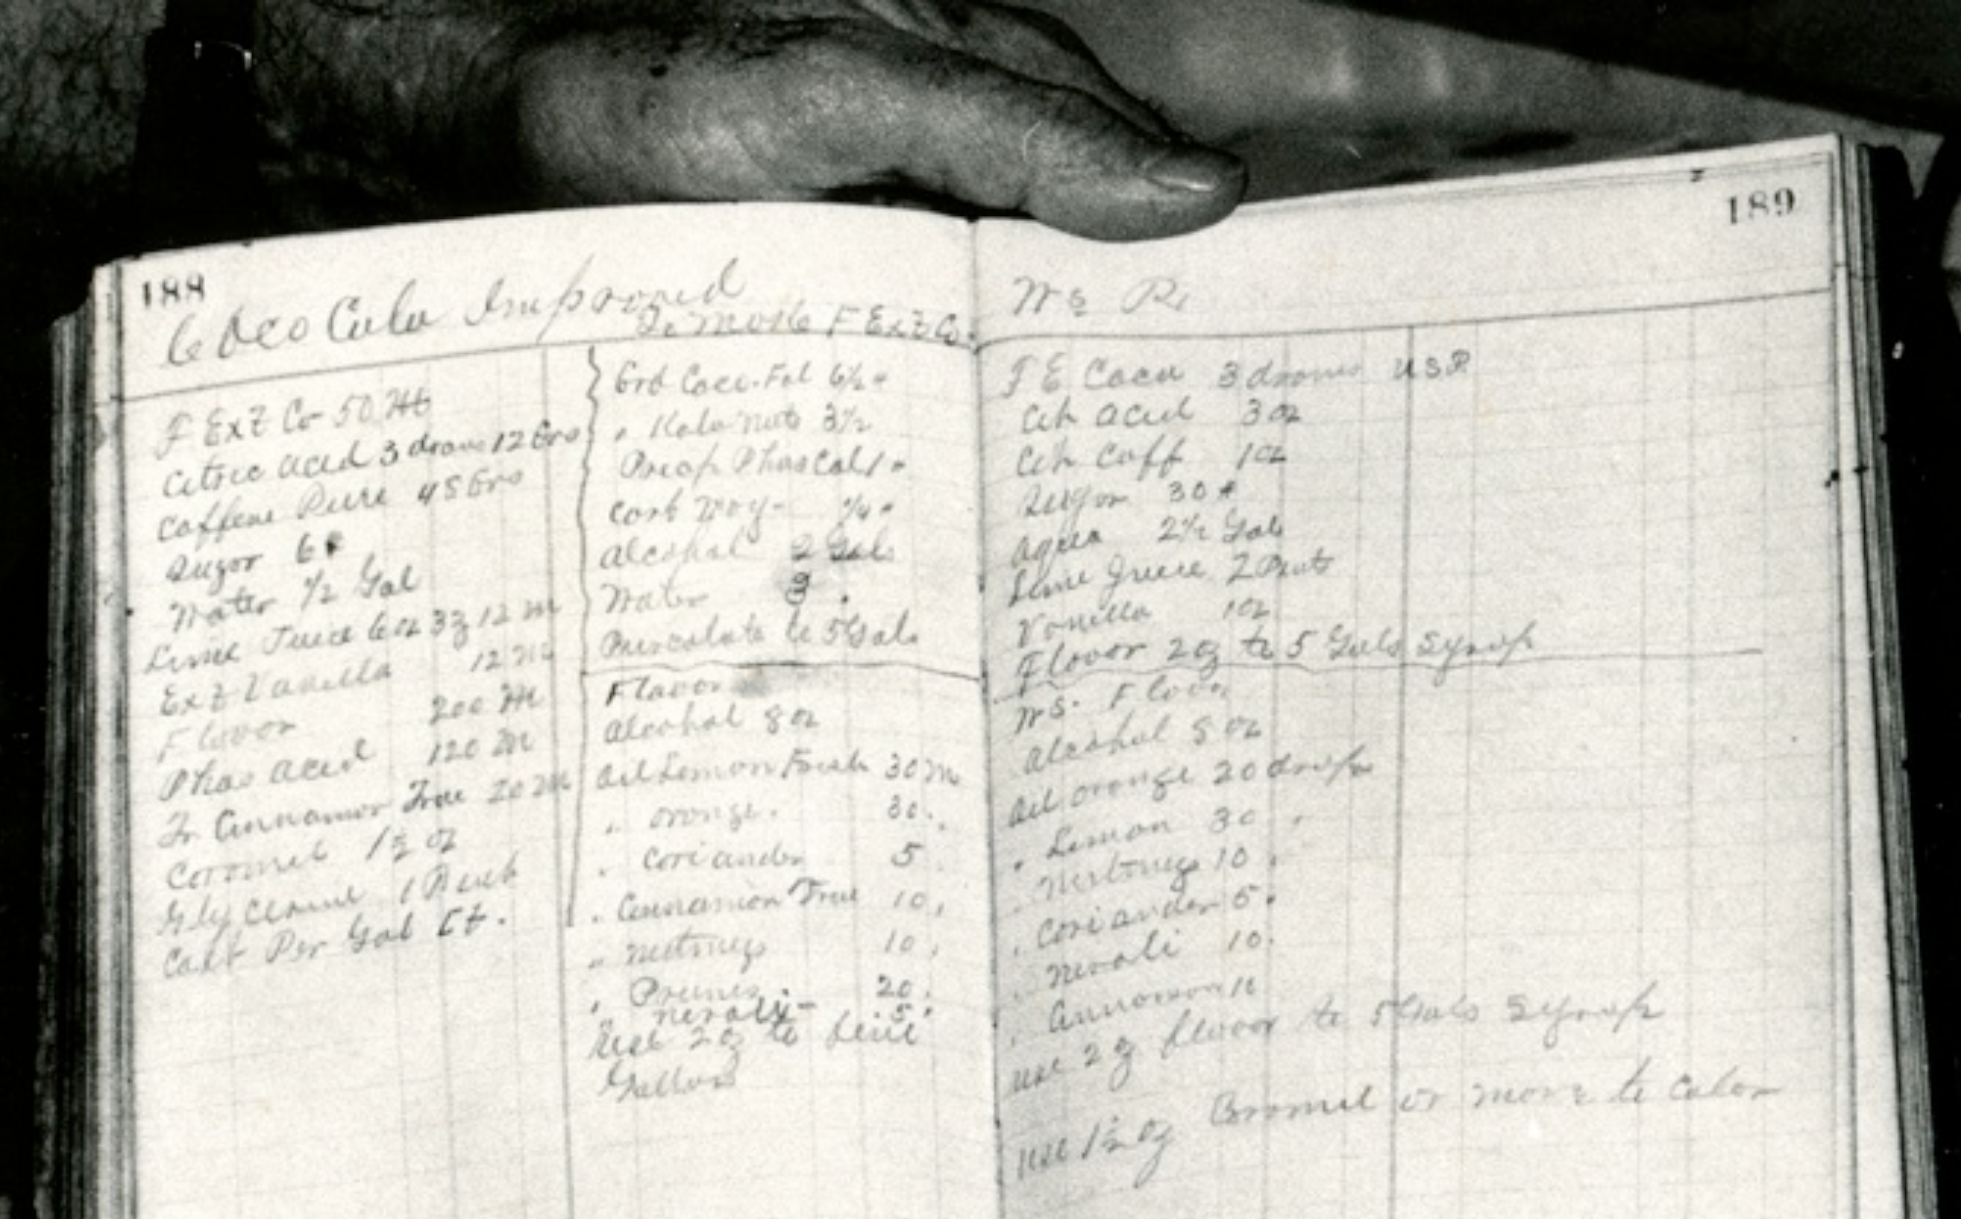 188
Coco Cola Improved
To Make F Ext Co.
F Ext Co 50 M
Citric Acid 3 drams 12 Grs
Caffene Pure 45 Grs
Sugar 6#
Water 1/2 Gal
Lime Juice 6 oz 3ʒ 12 M
Ext Vanilla 12 M
Flavor 200 M
Phos Acid 120 M
Tr Cinnamon True 20 M
Caromel 1½ oz
Glycerine 1
Cost Per Gal
Grd Coca
" Kola Nuts 3½
Precip Phos Cal 1 "
Carb Mag - ¼ "
Alcohol 2 Gals
Water 3 "
Percolate to 5 Gals
Flavor
Alcohol 8 oz
Oil Lemon Fresh 30 M
" Orange " 30 "
" Coriander 5
" Cinnamon True 10 "
" Nutmegs 10 "
" 20 "
" Neroly - 5 "
Use 2 oz to five
Gallons
189
F E Coca 3 drams USP
Cit Acid 3 oz
Cit Caff 1 oz
Sugar 30 #
Aqua 2½ Gal
Lime Juice 2 Pints
Vanilla 1 oz
Flavor 2 oz to 5 Gals Syrup
Flavor
Alcohol 8 oz
Oil Orange 20 drops
" Lemon 30 "
" Nutmegs 10 "
" Coriander 5 "
" Neroli 10 "
" Cinnamon
use 2 oz flavor to 5 Gals Syrup
use 1½ oz or more to color